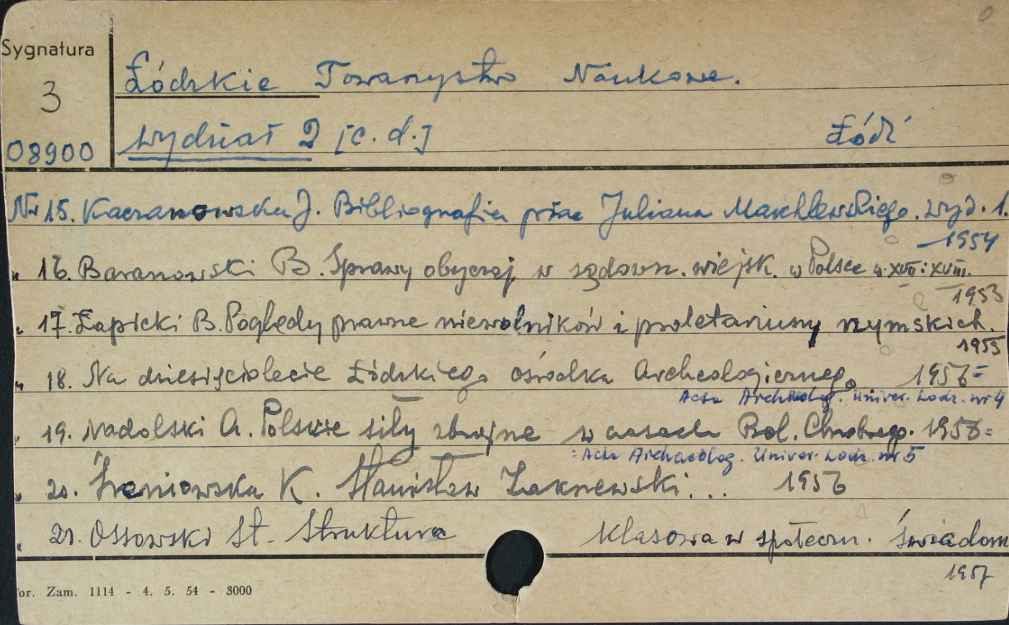 Sygnatura
3
08900
Łódzkie Towarzystwo Naukowe.
Wydział 2 [c. d.] Łódź
Nr 15. Kaczanowska J. Bibliografia prac Juliana Marchlewskiego. Wyd. 1.
1954
„ 16. Baranowski B. Sprawy obyczaj. w sądown. wiejsk. w Polsce w XVII i XVIII.
1953
„ 17. Łapicki B. Poglądy prawne niewolników i proletariuszy rzymskich.
1955
„ 18. Na dziesięciolecie Łódzkiego ośrodka Archeologicznego 1956 =
Acta Archaeolog. Univer. Lodz. nr 4
„ 19. Nadolski A. Polskie siły zbrojne w czasach Bol. Chrobrego. 1956 =
= Acta Archaeolog. Univer. Lodz. nr 5
„ 20. Śreniowska K. Stanisław Zakrzewski... 1956
„ 21. Ossowski St. Struktura klasowa w społeczn. świadom
1957
or. Zam. 1114 - 4. 5. 54 - 3000